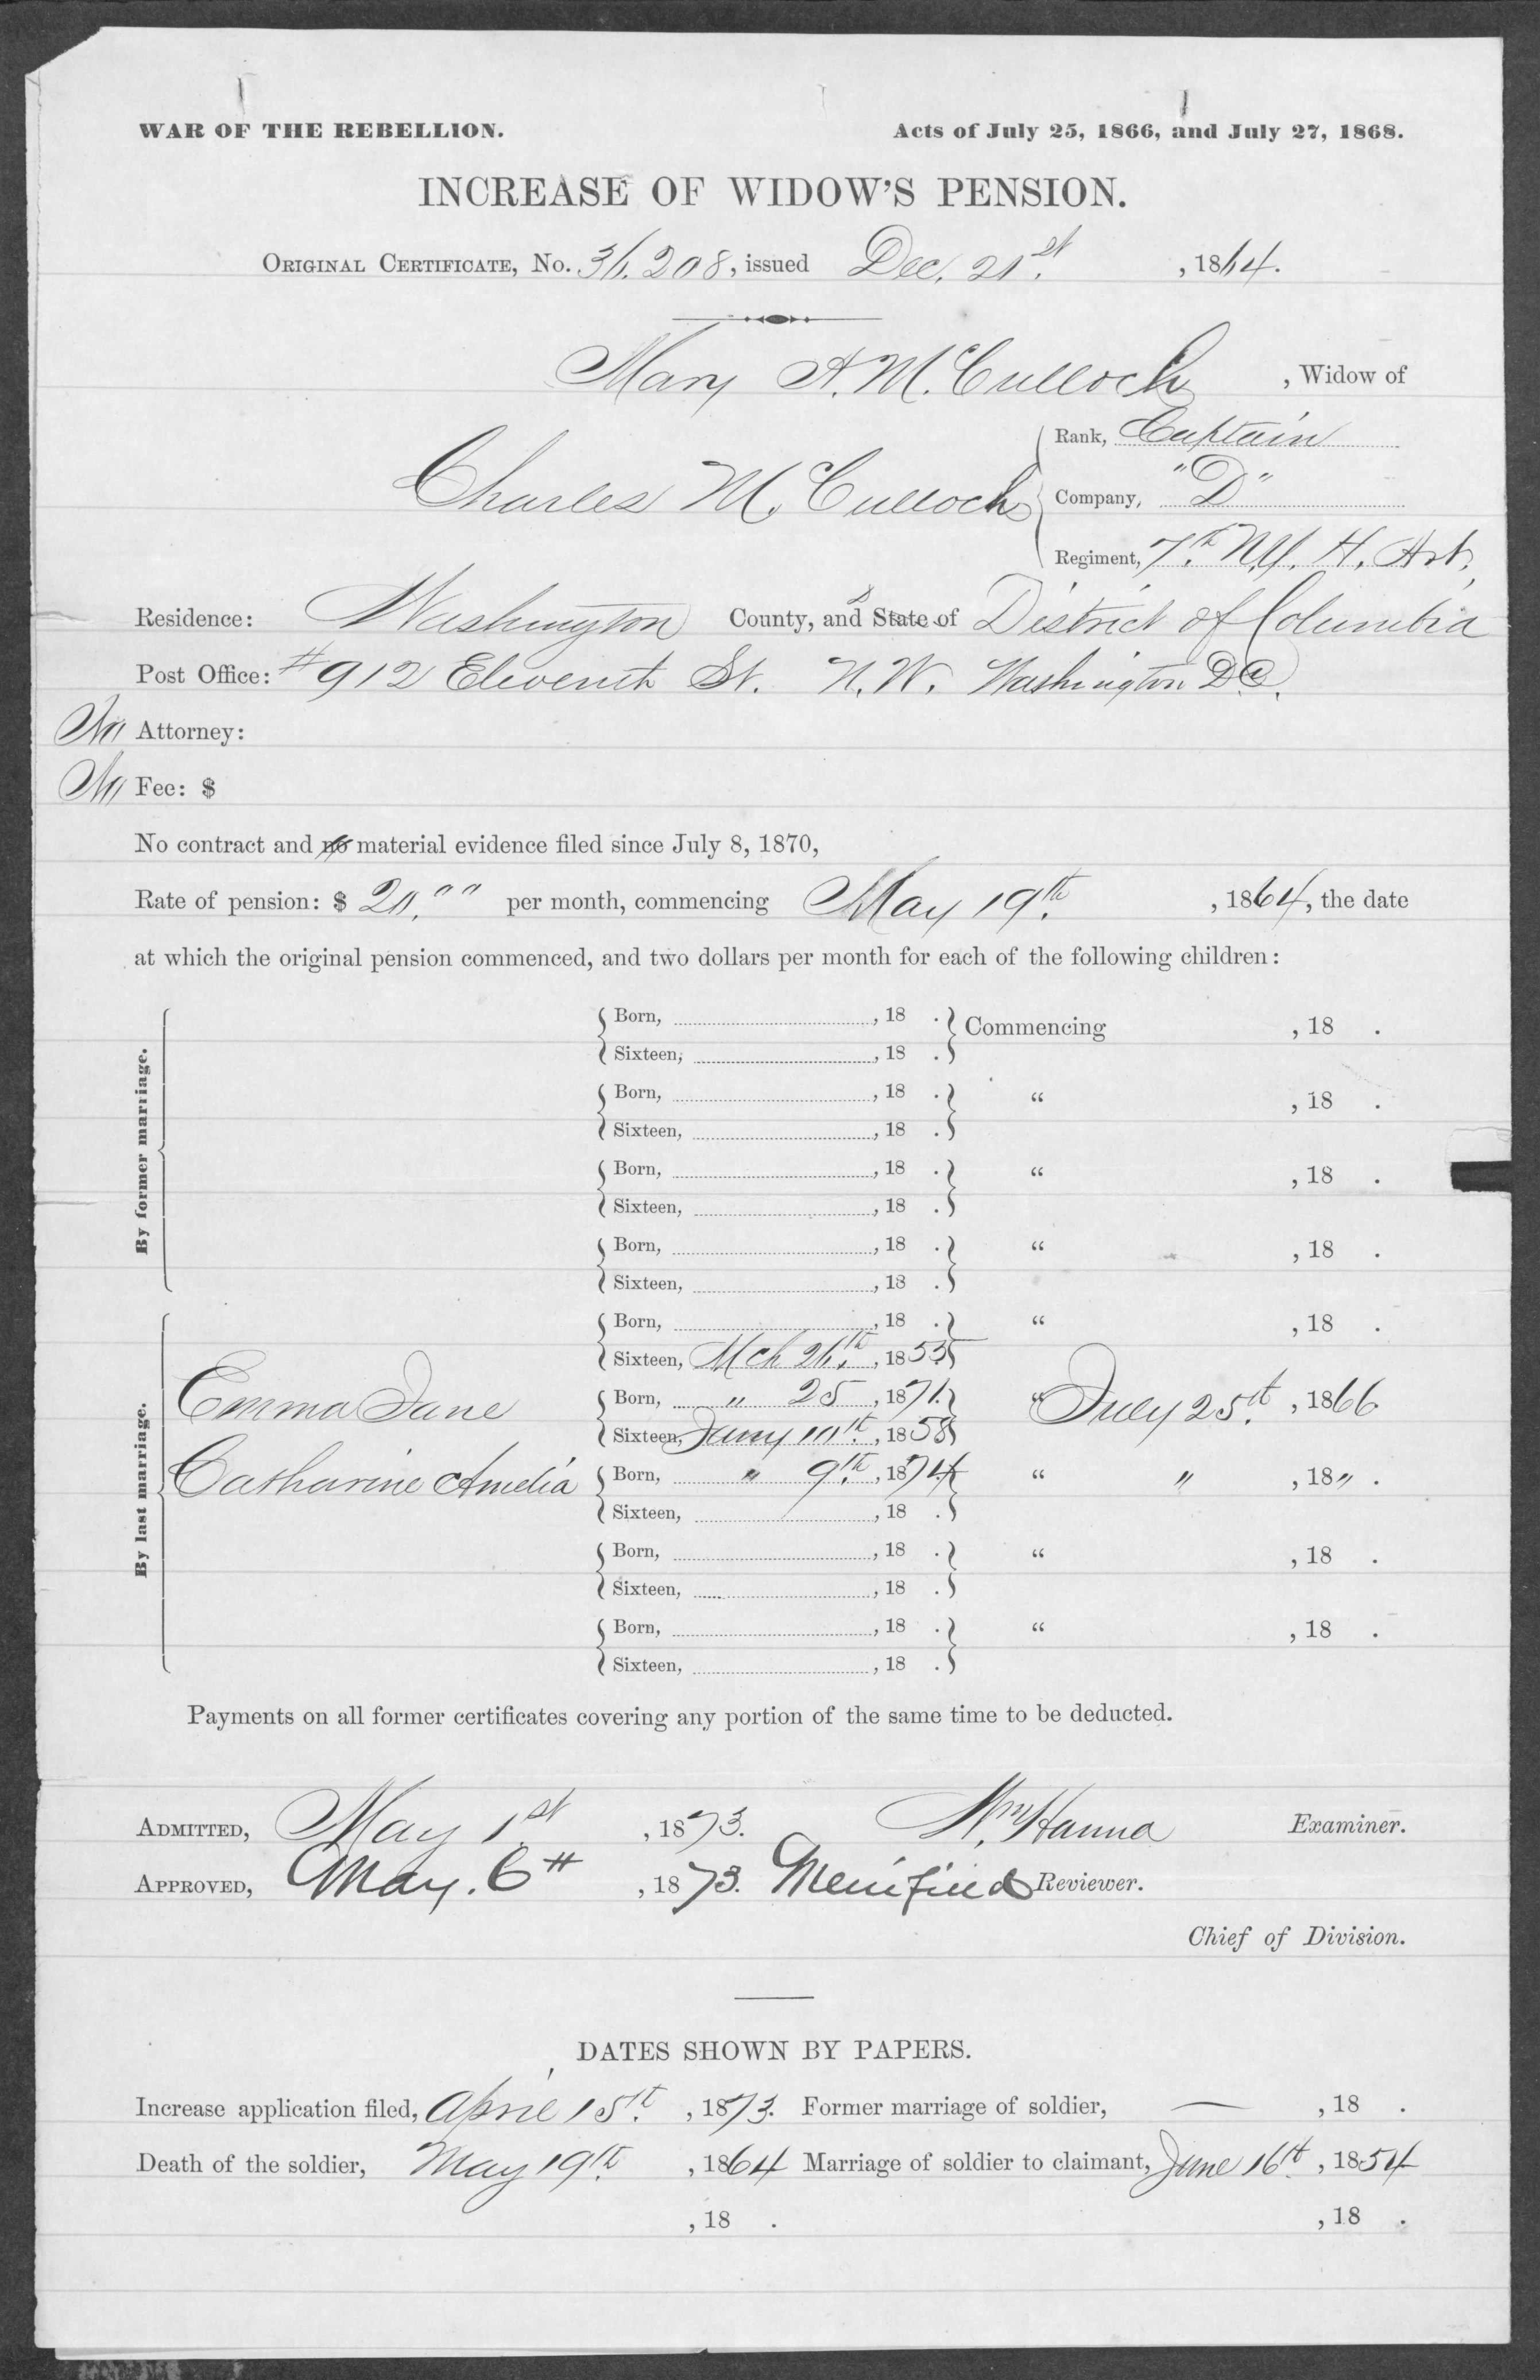 WAR OF THE REBELLION. Acts of July 25, 1866, and July 27, 1868.
INCREASE OF WIDOW'S PENSION.
ORIGINAL CERTIFICATE, No. 36.208, issued Dec. 21st, 1864.
Mary A. McCulloch, Widow of
Rank, Captain
Charles McCulloch Company, "D"
Regiment, 7th N.Y. H. Art.
Residence: Washington County, and State of District of Columbia
Post Office: #912 Eleventh St. N.W. Washington D.C.
No Attorney:
No Fee: $
No contract and no material evidence filed since July 8, 1870,
Rate of pension: $ 20." " per month, commencing May 19th, 1864, the date
at which the original pension commenced, and two dollars per month for each of the following children:
By former marriage.
Born, , 18 . Commencing , 18 .
Sixteen, , 18 .
Born, , 18 . " , 18 .
Sixteen, , 18 .
Born, , 18 . " , 18 .
Sixteen, , 18 .
Born, , 18 . " , 18 .
Sixteen, , 18 .
By last marriage.
Born, , 18 . " , 18 .
Sixteen, Mch 26th, 1855
Emma Jane Born, " 25, 1871. " July 25th, 1866
Sixteen, Jany 10th, 1858
Catharine Amelia Born, " 9th, 1874 " " , 18" .
Sixteen, , 18 .
Born, , 18 . " , 18 .
Sixteen, , 18 .
Born, , 18 . " , 18 .
Sixteen, , 18 .
Payments on all former certificates covering any portion of the same time to be deducted.
ADMITTED, May 1st, 1873. Wm Hanna Examiner.
APPROVED, May. 6th, 1873. Merrifield Reviewer.
Chief of Division.
DATES SHOWN BY PAPERS.
Increase application filed, April 15th, 1873. Former marriage of soldier, — , 18 .
Death of the soldier, May 19th, 1864 Marriage of soldier to claimant, June 16th, 1854
, 18 . , 18 .